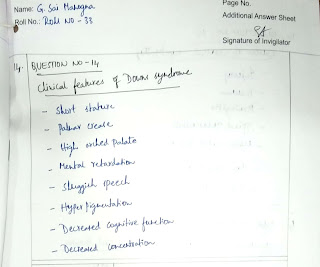 Name: G. Sai Manogna
Roll No.: Roll NO - 33
Page No.
Additional Answer Sheet
Signature of Invigilator
14. QUESTION NO - 14
Clinical features of Downs syndrome
- Short stature
- Palmar crease
- High arched palate
- Mental retardation
- Sluggish speech
- Hyper pigmentation
- Decreased cognitive function
- Decreased concentration